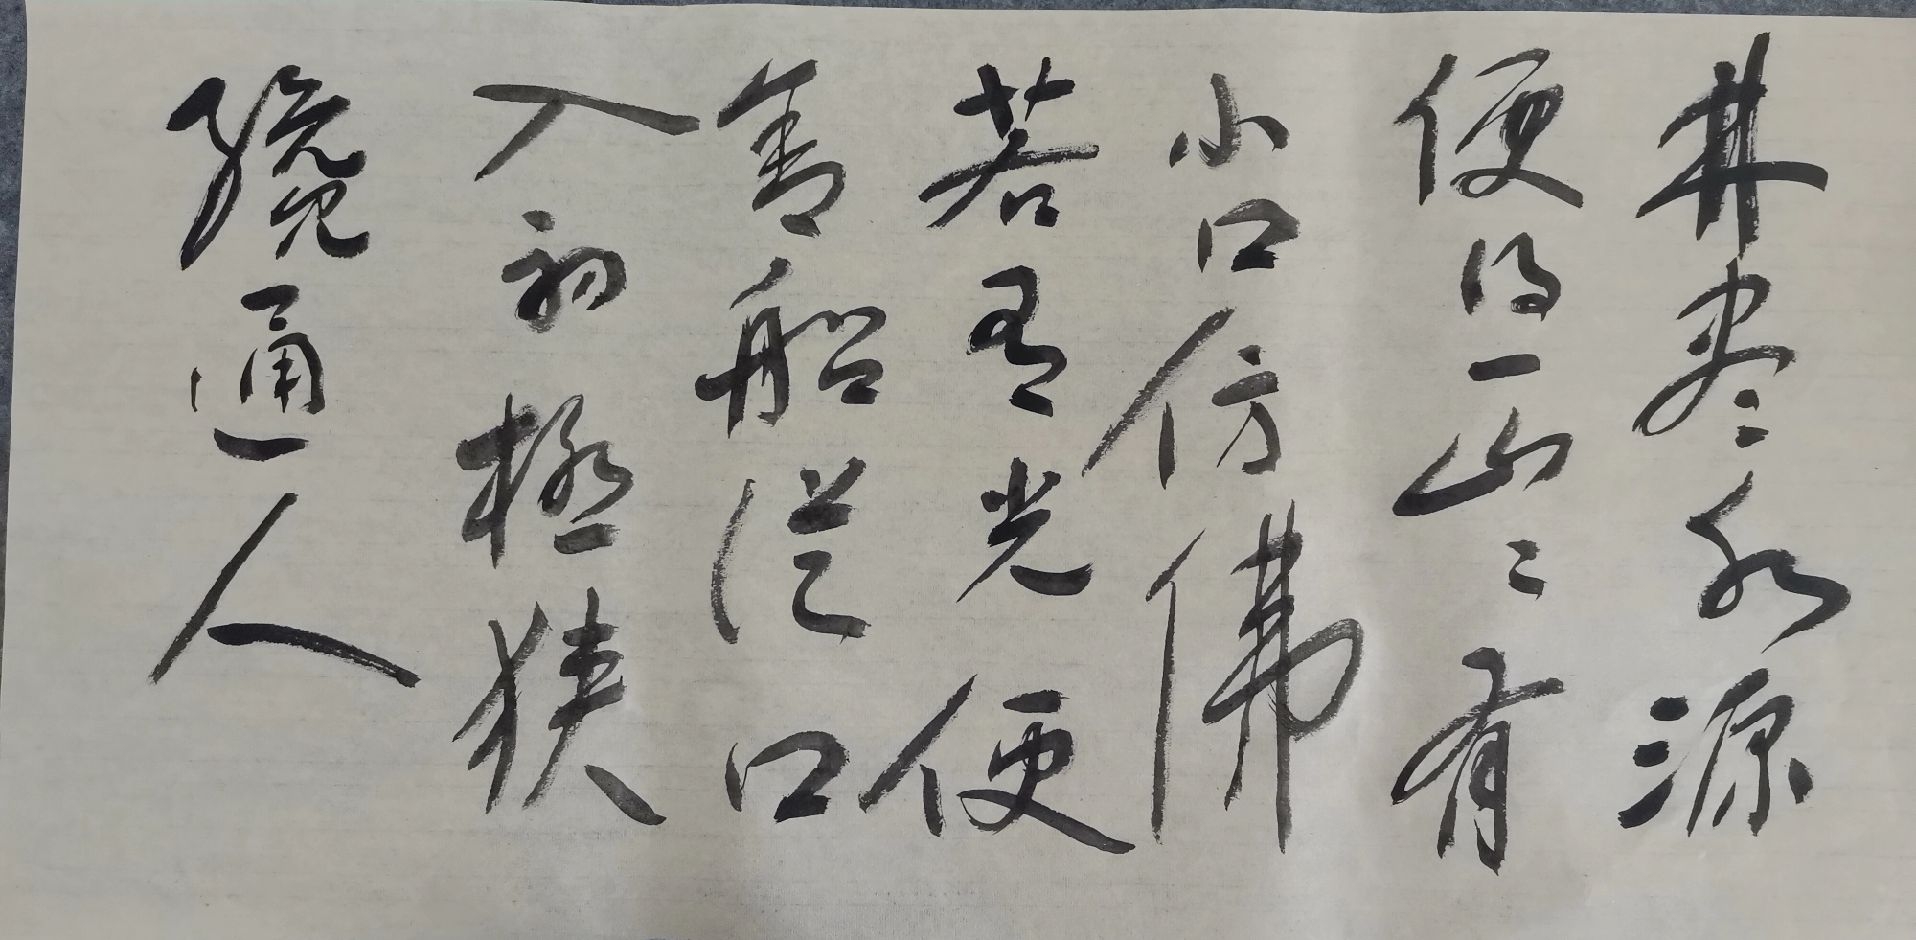 林尽水源
便得一山〻有
小口仿佛
若有光便
舍船从口
入初极狭
纔通人